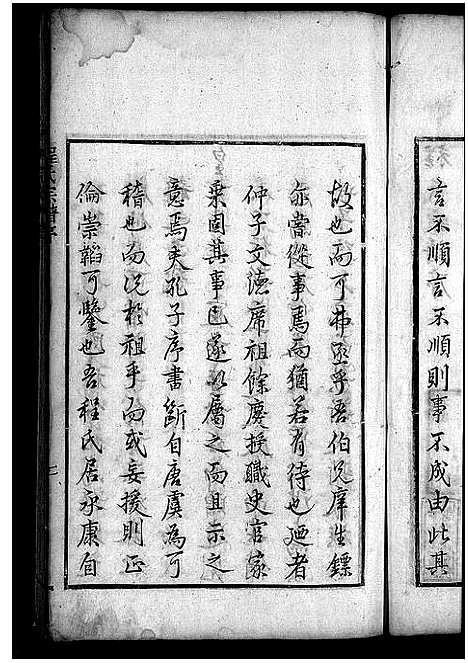 言不順言不順則事不成由此其
故也而可弗亟乎吾伯兄庠生鏢
亦嘗從事焉而猶若有待也廼者
仲子文德席祖餘慶授職史官家
乘固其事也遂以屬之而且示之
意焉夫孔子序書斷自唐虞為可
稽也而況於祖乎而或妄援則正
倫崇韜可鑒也吾程氏居永康自
程氏宗譜序